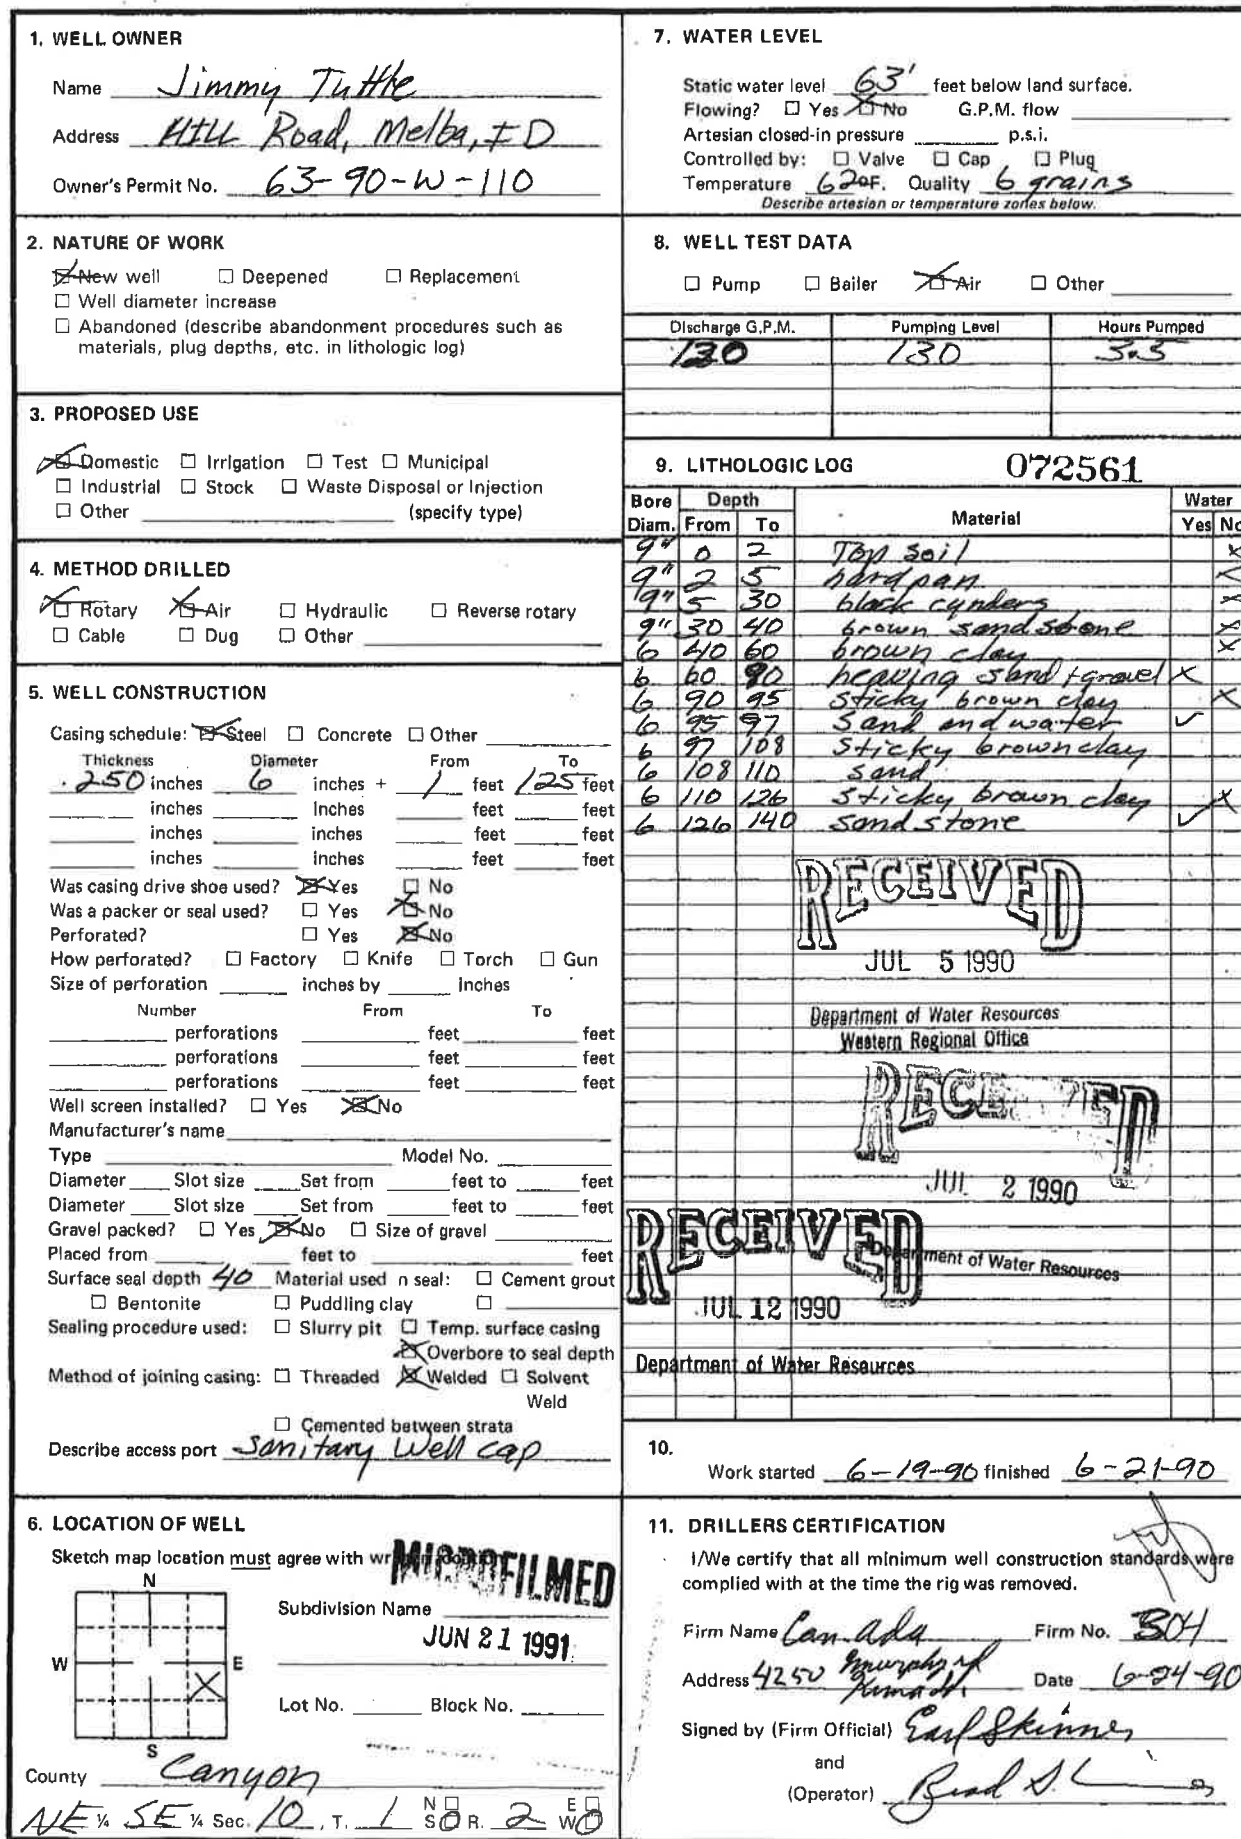 1. WELL OWNER
Name Jimmy Tuttle
Address HILL Road, Melba, ID
Owner's Permit No. 63-90-W-110
2. NATURE OF WORK
New well Deepened Replacement
Well diameter increase
Abandoned (describe abandonment procedures such as
materials, plug depths, etc. in lithologic log)
3. PROPOSED USE
Domestic Irrigation Test Municipal
Industrial Stock Waste Disposal or Injection
Other (specify type)
4. METHOD DRILLED
Rotary Air Hydraulic Reverse rotary
Cable Dug Other
5. WELL CONSTRUCTION
Casing schedule: Steel Concrete Other
Thickness Diameter From To
.250 inches 6 inches + 1 feet 125 feet
inches Inches feet feet
inches inches feet feet
inches inches feet feet
Was casing drive shoe used? Yes No
Was a packer or seal used? Yes No
Perforated? Yes No
How perforated? Factory Knife Torch Gun
Size of perforation inches by Inches
Number From To
perforations feet feet
perforations feet feet
perforations feet feet
Well screen installed? Yes No
Manufacturer's name
Type Model No.
Diameter Slot size Set from feet to feet
Diameter Slot size Set from feet to feet
Gravel packed? Yes No Size of gravel
Placed from feet to feet
Surface seal depth 40 Material used n seal: Cement grout
Bentonite Puddling clay
Sealing procedure used: Slurry pit Temp. surface casing
Overbore to seal depth
Method of joining casing: Threaded Welded Solvent
Weld
Cemented between strata
Describe access port Sanitary Well cap
6. LOCATION OF WELL
Sketch map location must agree with
MICROFILMED
JUN 21 1991
N
W E
S
Subdivision Name
Lot No. Block No.
County Canyon
NE ¼ SE ¼ Sec. 10, T. 1 N S R. 2 E W
7. WATER LEVEL
Static water level 63' feet below land surface.
Flowing? Yes No G.P.M. flow
Artesian closed-in pressure p.s.i.
Controlled by: Valve Cap Plug
Temperature 62 °F. Quality 6 grains
Describe artesian or temperature zones below.
8. WELL TEST DATA
Pump Bailer Air Other
Discharge G.P.M. Pumping Level Hours Pumped
130 130 3.5
9. LITHOLOGIC LOG 072561
Bore Depth Water
Diam. From To Material Yes No
9" 0 2 Top soil x
9" 2 5 hard pan x
9" 5 30 black cynders x
9" 30 40 brown sandstone x
6 40 60 brown clay x
6 60 90 heaving sand + gravel x
6 90 95 sticky brown clay x
6 95 97 sand and water ✓
6 97 108 sticky brown clay
6 108 110 sand
6 110 126 sticky brown clay x
6 126 140 sand stone ✓
RECEIVED
JUL 5 1990
Department of Water Resources
Western Regional Office
RECEIVED
JUL 2 1990
Department of Water Resources
RECEIVED
JUL 12 1990
Department of Water Resources
10.
Work started 6-19-90 finished 6-21-90
11. DRILLERS CERTIFICATION
I/We certify that all minimum well construction standards were
complied with at the time the rig was removed.
Firm Name Can-Ada Firm No. 304
Address 4250 Murphy rd Date 6-24-90
Signed by (Firm Official) Earl Skinner
and
(Operator) Brad S.